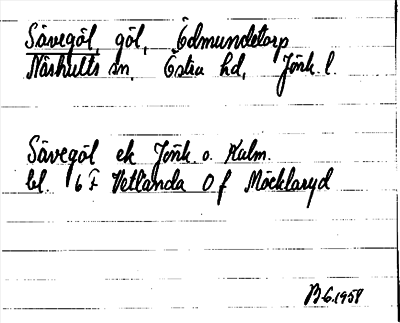 Sävegöl, göl, Edmundetorp
Näshults sn, Östra hd, Jönk. l.
Sävegöl ek Jönk o. Kalm.
bl. 6 F Vetlanda O f Möcklaryd
B 6.1958